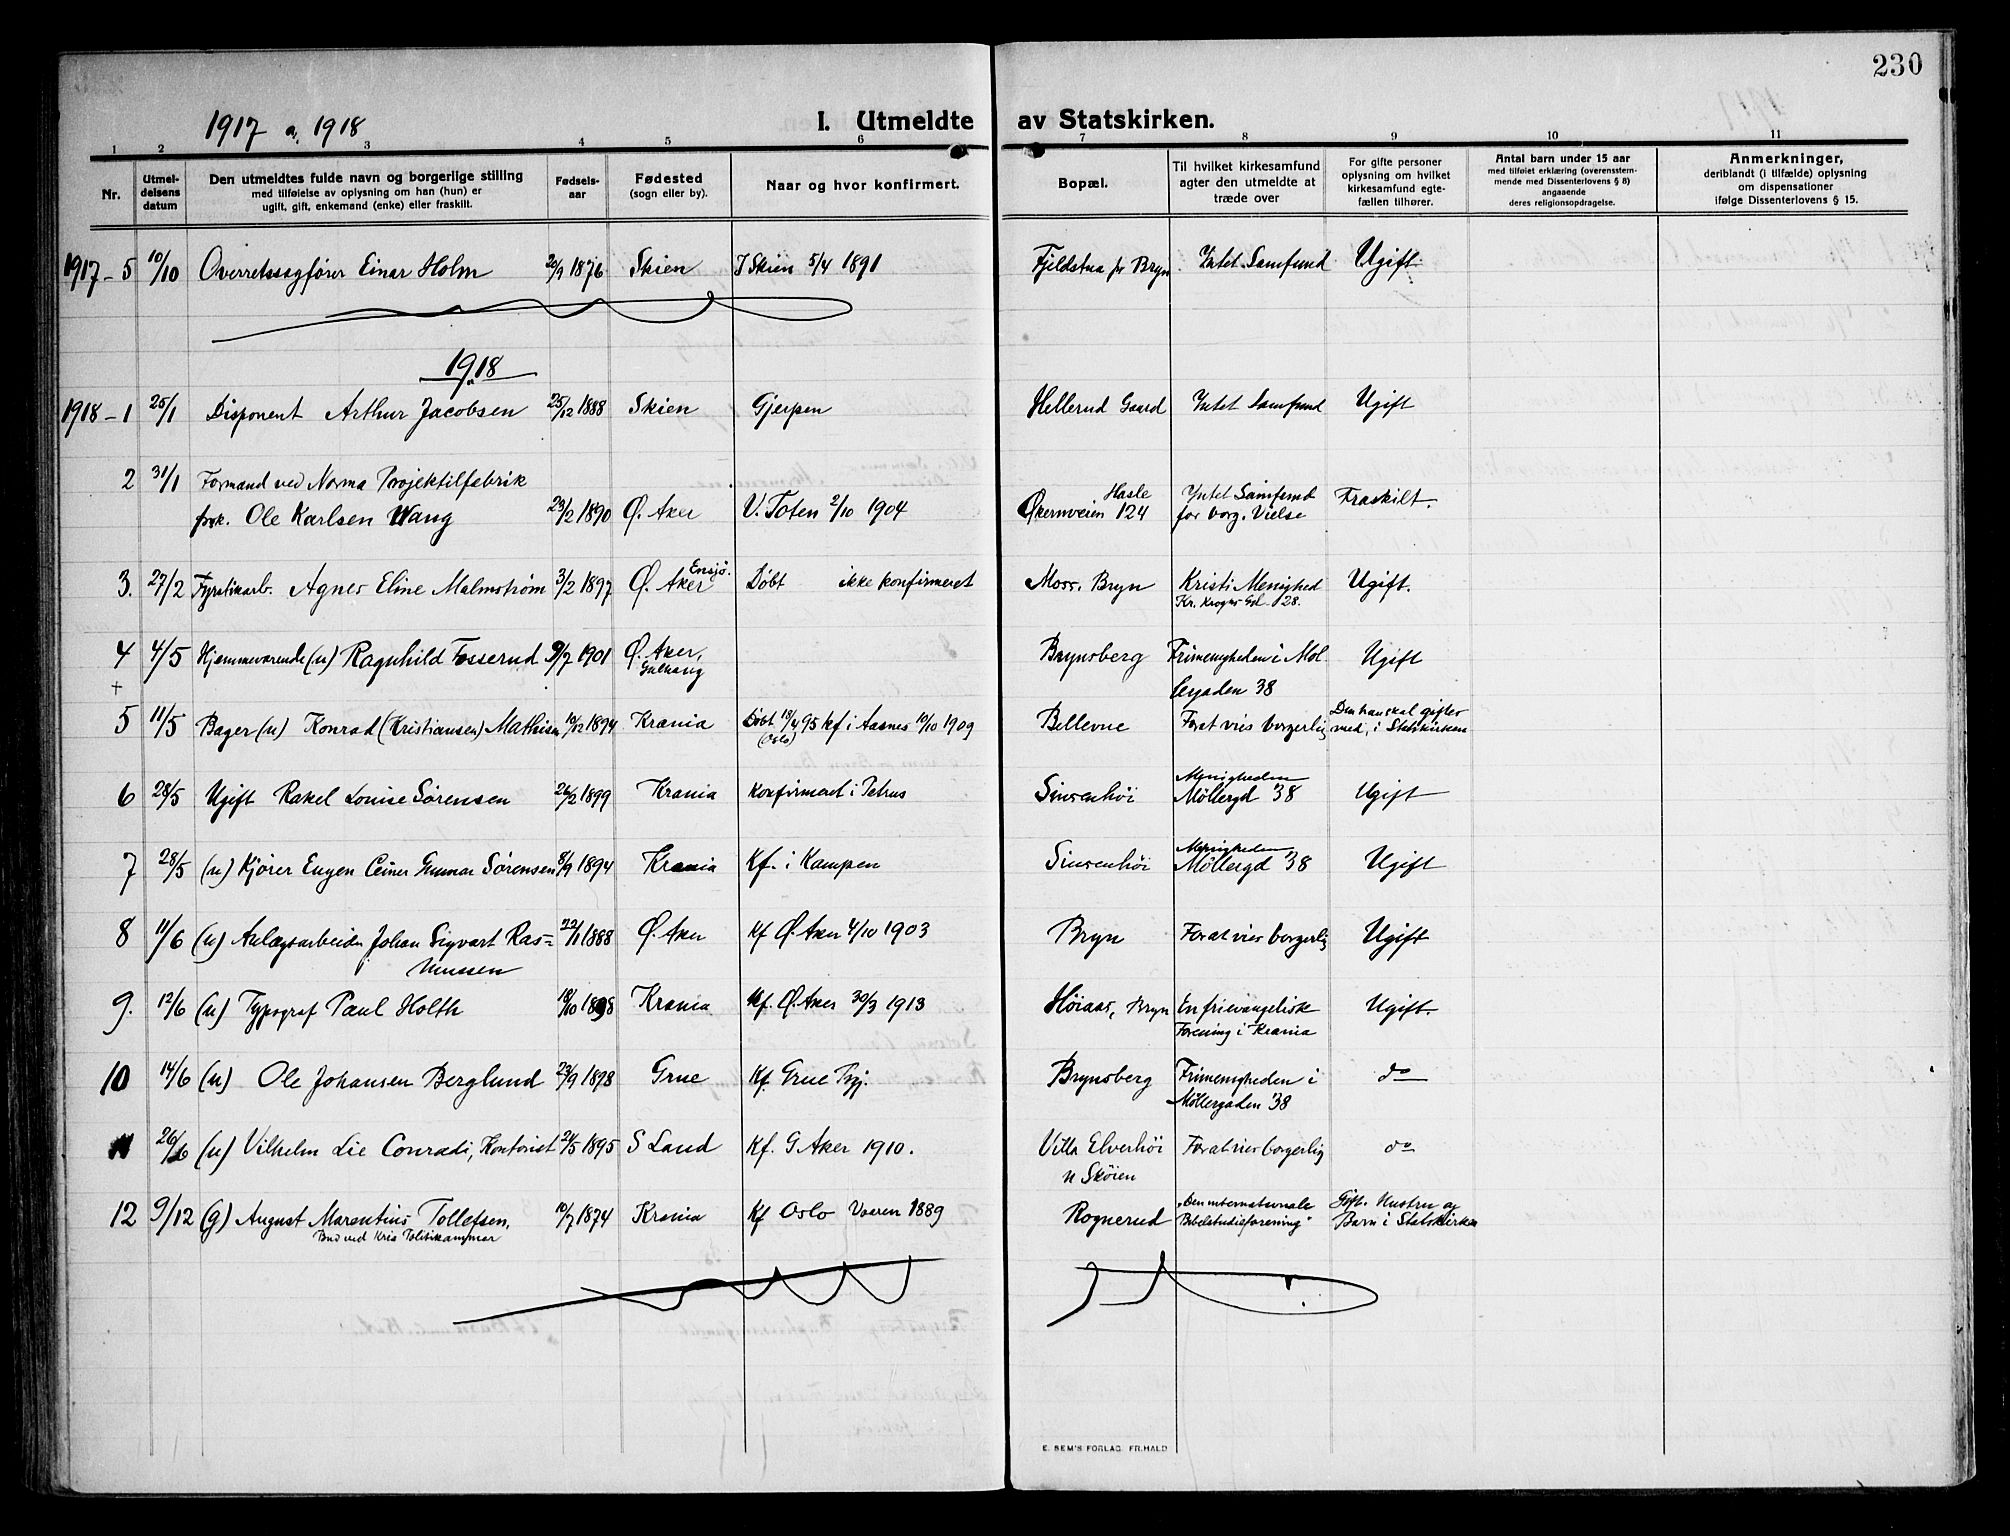 230
1917 a 1918
I. Utmeldte av Statskirken.
1 2 3 4 5 6 7 8 9 10 11
Nr.
Utmel-
delsens
datum
Den utmeldtes fulde navn og borgerlige stilling
med tilføielse av oplysning om han (hun) er
ugift, gift, enkemand (enke) eller fraskilt.
Fødsels-
aar
Fødested
(sogn eller by).
Naar og hvor konfirmert.
Bopæl.
Til hvilket kirkesamfund
agter den utmeldte at
træde over
For gifte personer
oplysning om hvilket
kirkesamfund egte-
fællen tilhører.
Antal barn under 15 aar
med tilføiet erklæring (overensstem-
mende med Dissenterlovens § 8)
angaaende
deres religionsopdragelse.
Anmerkninger,
deriblandt (i tilfælde) oplysning
om dispensationer
ifølge Dissenterlovens § 15.
1917 - 5 10/10 Overretssagfører Einar Holm 20/9 1876 Skien I Skien 5/4 1891 Fjeldstua pr Bryn Intet Samfund Ugift
1918
1918 - 1 25/1 Disponent Arthur Jacobsen 25/12 1888 Skien Gjerpen Hellerud Gaard Intet Samfund Ugift
2 31/1 Formand ved Norma Projektilfabrik Hasle Intet Samfund Fraskilt.
frsk. Ole Karlsen Wang 29/2 1890 Ø. Aker V. Toten 2/10 1904 Økernveien 124 for borg. Vielse
3. 27/2 Fyrstikarb. Agnes Eline Malmstrøm 3/2 1897 Ø. Aker Ensjø. Døbt ikke konfirmeret Moss. Bryn Kristi Menighed Ugift.
Kr. Kroghs Gd. 28.
4 4/5 Hjemmeværende (u) Ragnhild Fosserud 9/7 1901 Ø. Aker, Brynsberg Frimenigheden i Møl Ugift
+ lergaden 38
5 11/5 Bager (u) Konrad (Kristiansen) Mathisen 10/12 1894 Krania Døbt 18/4 95 kf i Aasnes 10/10 1909 Bellevue For at vies borgerlig Den han skal giftes
(Oslo) med, i Statskirken
6 28/5 Ugift Rakel Louise Sørensen 26/2 1899 Krania Konfirmeret i Petrus Sinsenhøi Menigheden Ugift
Møllergd 38
7 28/5 (u) Kjører Eugen Einer Gunnar Sørensen 8/9 1894 Krania Kf. i Kampen Sinsenhøi Menigheden Ugift
Møllergd 38
8 11/6 (u) Anlægsarbeider Johan Sigvart Ras= 22/1 1888 Ø. Aker Kf Ø. Aker 4/10 1903 Bryn For at vies borgerlig Ugift
mussen
9. 12/6 (u) Typograf Paul Holth 18/10 1898 Krania Kf. Ø. Aker 30/3 1913 Høiaas, Bryn En frievangelisk Ugift.
Forening i Krania
10 14/6 (u) Ole Johansen Berglund 23/9 1898 Grue Kf. Grue Brynsberg Frimenigheden i do
Møllergaden 38
11 26/6 (u) Vilhelm Lie Conradi, Kontorist 24/5 1895 S Land Kf. G Aker 1910. Villa Elverhøi For at vies borgerlig do
n Skøien
12 9/12 (g) August Marentius Tollefsen, 10/7 1874 Krania Kf Oslo Vaaren 1889 Rognerud "Den internationale Gift. Hustru og
Bud ved Kria Politikammer Bibelstudieforening" Barn i Statskirken
E. SEM'S FORLAG. FR.HALD